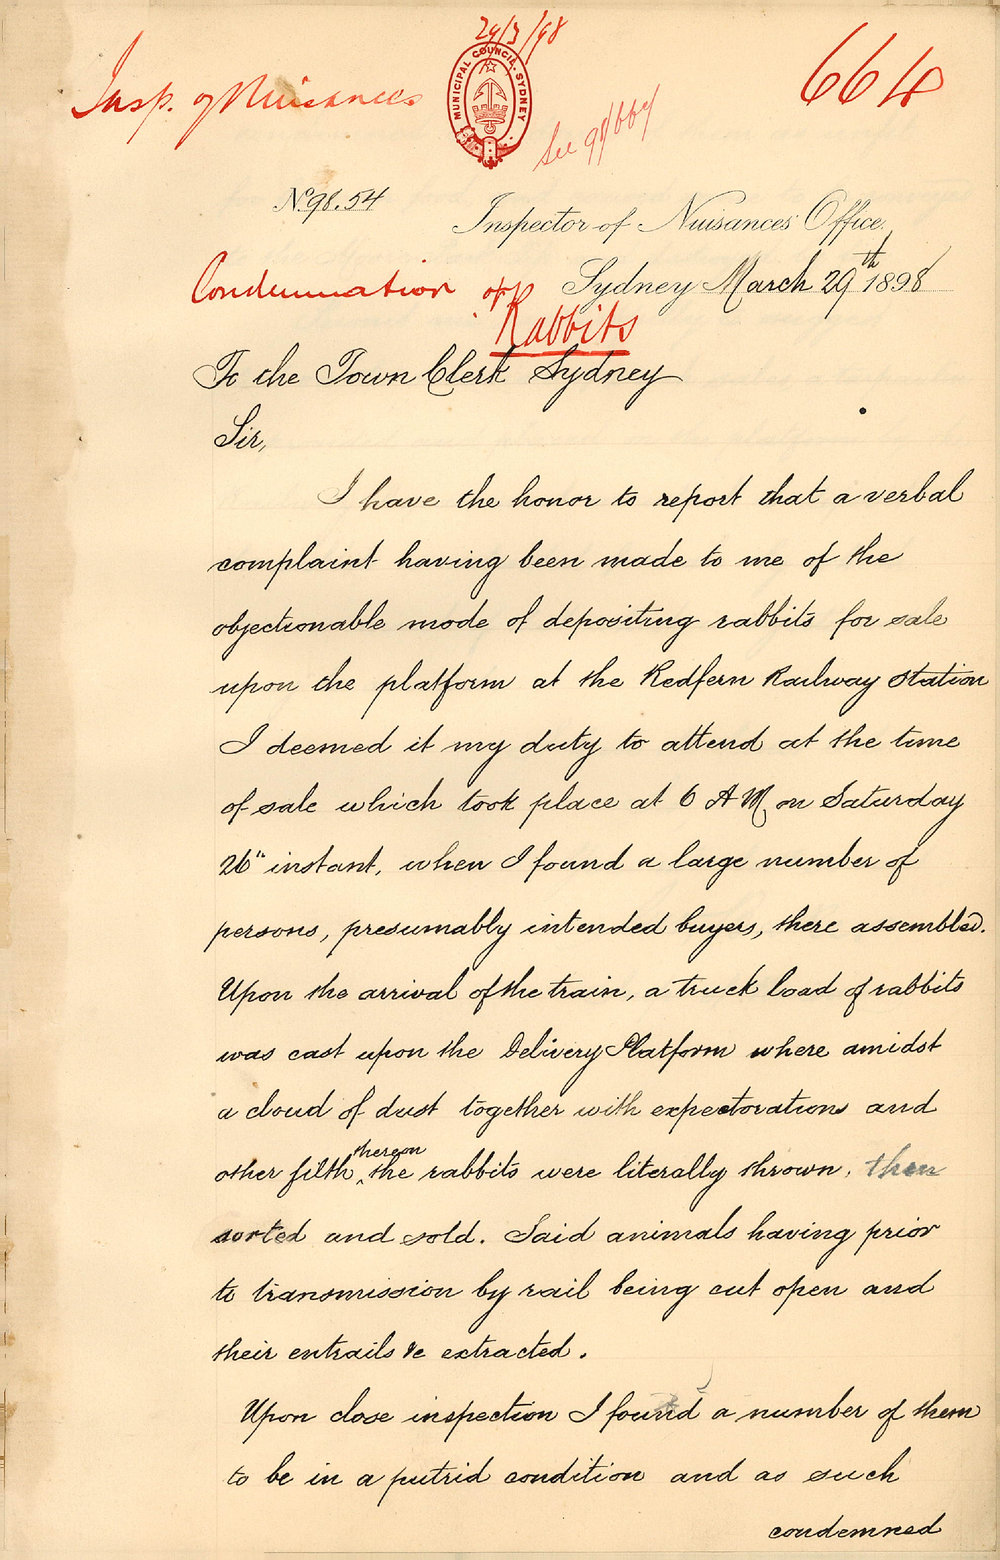 29/3/98
Insp. of Nuisances
MUNICIPAL COUNCIL, SYDNEY
664
See 98/667
No. 98.54
Inspector of Nuisances' Office,
Sydney March 29th 1898
Condemnation of
Rabbits
To the Town Clerk Sydney
Sir,
I have the honor to report that a verbal
complaint having been made to me of the
objectionable mode of depositing rabbits for sale
upon the platform at the Redfern Railway Station
I deemed it my duty to attend at the time
of sale which took place at 6 AM, on Saturday
26" instant, when I found a large number of
persons, presumably intended buyers, there assembled.
Upon the arrival of the train, a truck load of rabbits
was cast upon the Delivery Platform where amidst
a cloud of dust together with expectorations and
other filth thereon the rabbits were literally thrown, then
sorted and sold. Said animals having prior
to transmission by rail being cut open and
their entrails &c extracted.
Upon close inspection I found a number of them
to be in a putrid condition and as such
condemned